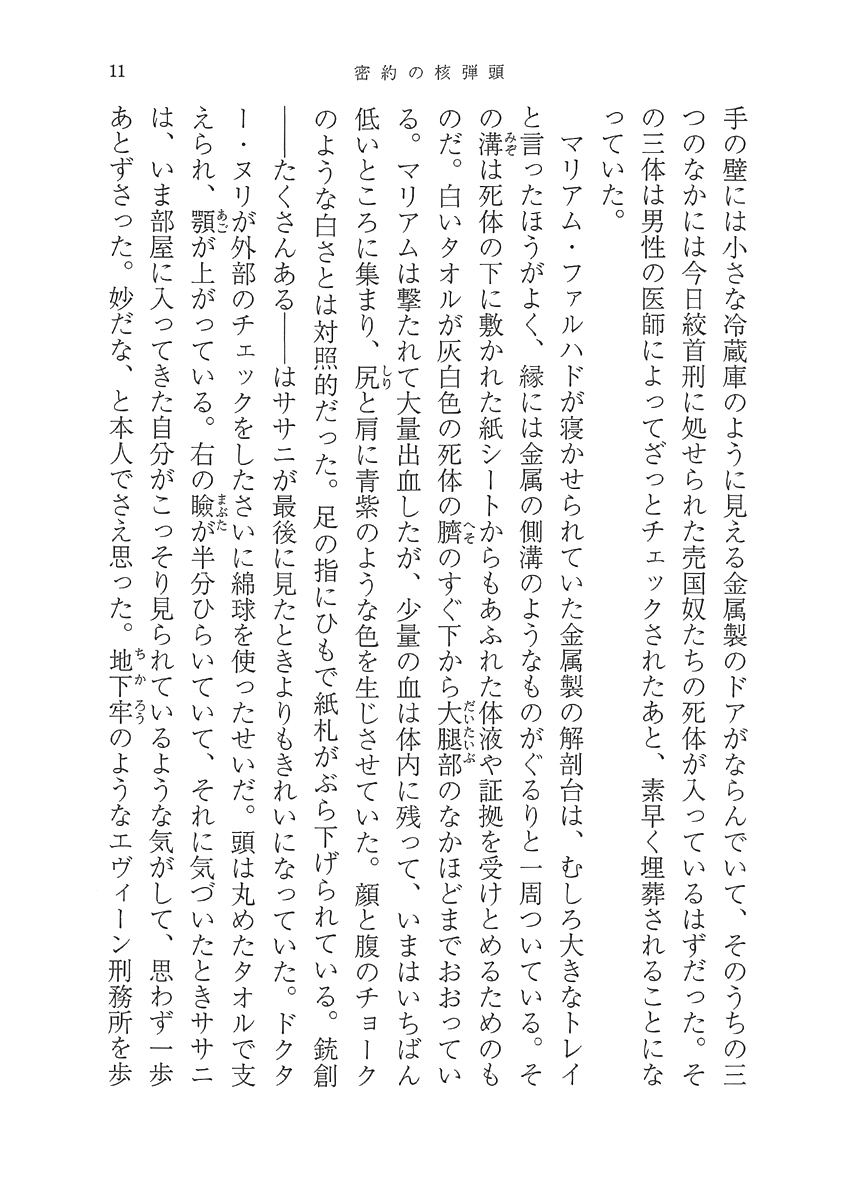 11
密約の核弾頭
手の壁には小さな冷蔵庫のように見える金属製のドアがならんでいて、そのうちの三
つのなかには今日絞首刑に処せられた売国奴たちの死体が入っているはずだった。そ
の三体は男性の医師によってざっとチェックされたあと、素早く埋葬されることにな
っていた。
　マリアム・ファルハドが寝かせられていた金属製の解剖台は、むしろ大きなトレイ
と言ったほうがよく、縁には金属の側溝のようなものがぐるりと一周ついている。そ
の溝は死体の下に敷かれた紙シートからもあふれた体液や証拠を受けとめるためのも
のだ。白いタオルが灰白色の死体の臍のすぐ下から大腿部のなかほどまでおおってい
る。マリアムは撃たれて大量出血したが、少量の血は体内に残って、いまはいちばん
低いところに集まり、尻と肩に青紫のような色を生じさせていた。顔と腹のチョーク
のような白さとは対照的だった。足の指にひもで紙札がぶら下げられている。銃創
――たくさんある――はササニが最後に見たときよりもきれいになっていた。ドクタ
ー・ヌリが外部のチェックをしたさいに綿球を使ったせいだ。頭は丸めたタオルで支
えられ、顎が上がっている。右の瞼が半分ひらいていて、それに気づいたときササニ
は、いま部屋に入ってきた自分がこっそり見られているような気がして、思わず一歩
あとずさった。妙だな、と本人でさえ思った。地下牢のようなエヴィーン刑務所を歩